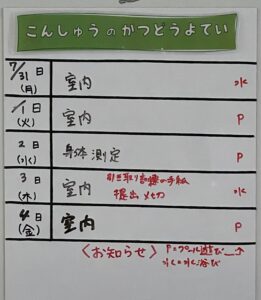 こんしゅうのかつどうよてい
7/31日(月) 室内 水
8/1日(火) 室内 P
2日(水) 身体測定 P
3日(木) 室内 引き取り訓練の手紙 提出〆切 水
4日(金) 室内 P
〈お知らせ〉 P=プール遊び
水=水遊び